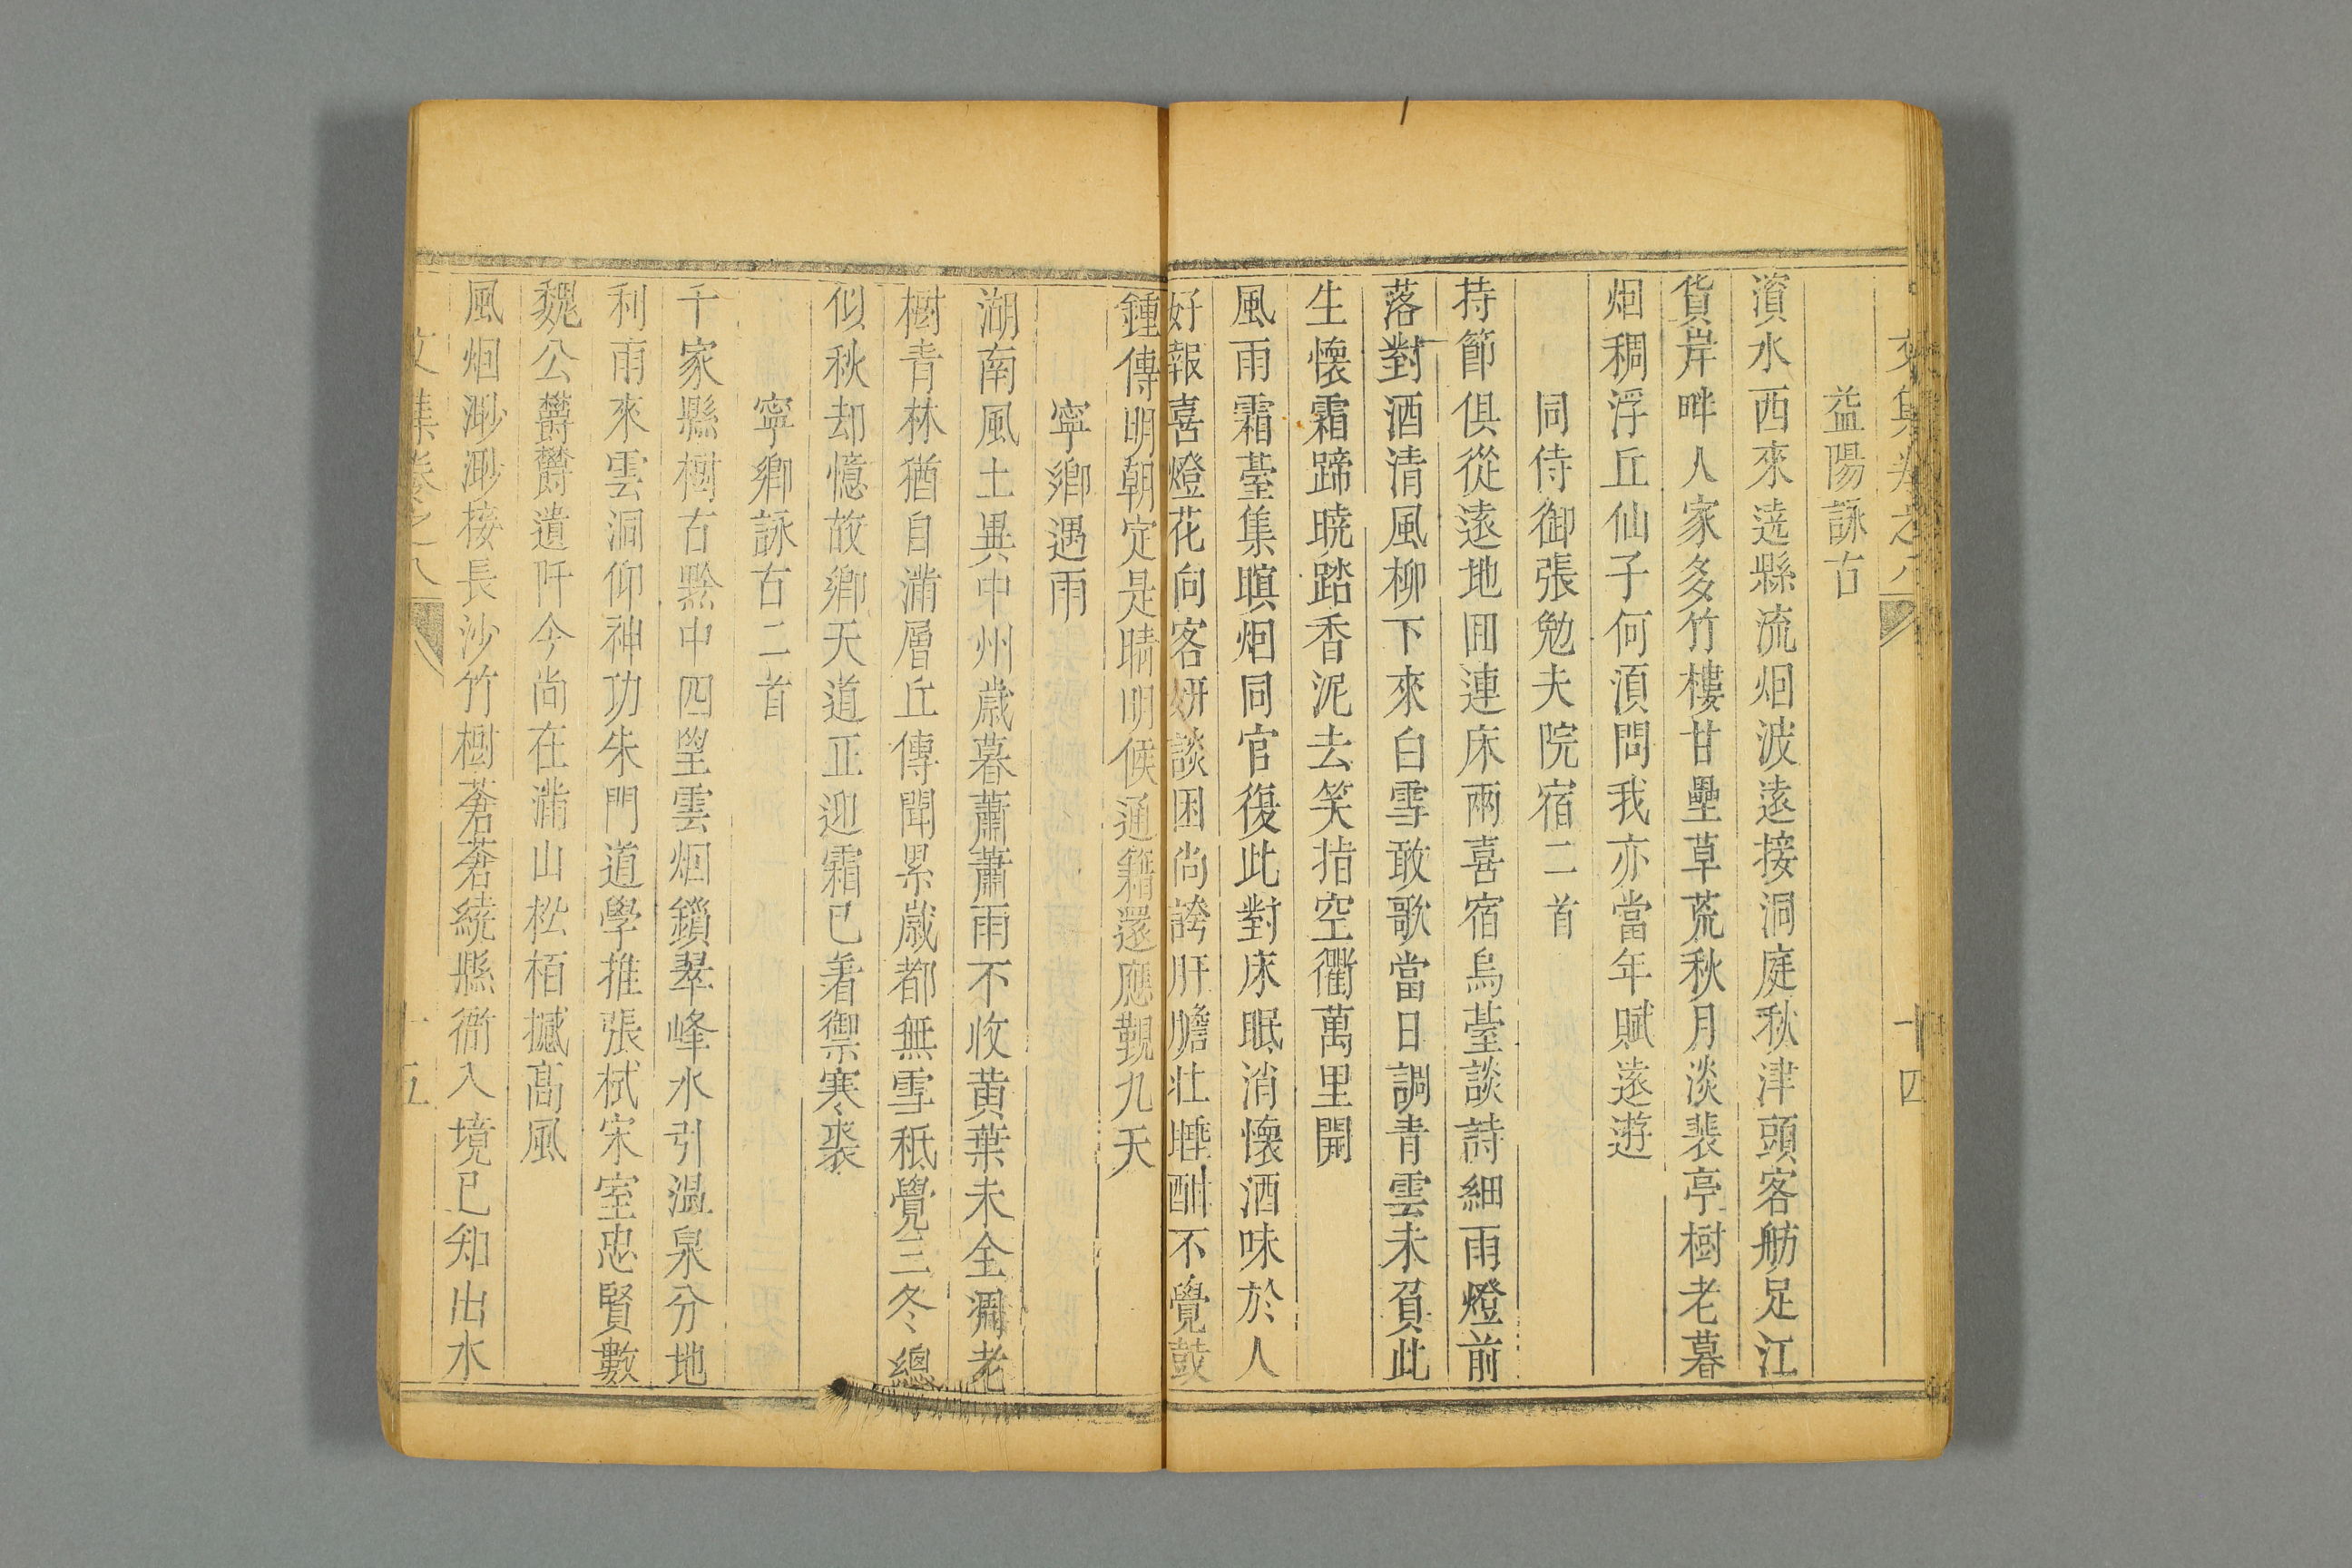 文集卷之八 十四
益陽詠古
濱水西來遶縣流烟波遠接洞庭秋津頭客舫足江
貨岸畔人家多竹樓甘壘草荒秋月淡裴亭樹老暮
烟稠浮丘仙子何湏問我亦當年賦遠遊
同侍御張勉夫院宿二首
持節俱從遠地囬連床兩喜宿烏䑓談詩細雨燈前
落對酒清風柳下來白雪敢歌當日調青雲未負此
生懷霜蹄曉踏香泥去笑指空衢萬里開
風雨霜䑓集暝烟同官復此對床眠消懷酒味於人
好報喜燈花向客妍談困尚誇肝膽壮睡酣不覺鼓
鍾傳明朝定是晴明候通籍還應覲九天
寧鄉遇雨
湖南風土異中州歲暮蕭蕭雨不收黄葉未全凋老
樹青林猶自滿層丘傳聞累歲都無雪秪覺三冬總
似秋却憶故鄉天道正迎霜已着禦寒裘
寧鄉詠古二首
千家縣樹古黔中四望雲烟鎖翠峰水引温泉分地
利雨來雲洞仰神功朱門道學推張栻宋室忠賢數
魏公欝欝遺阡今尚在滿山松栢撼髙風
風烟渺渺接長沙竹樹蒼蒼繞縣衙入境已知出水
文集卷之八 十五